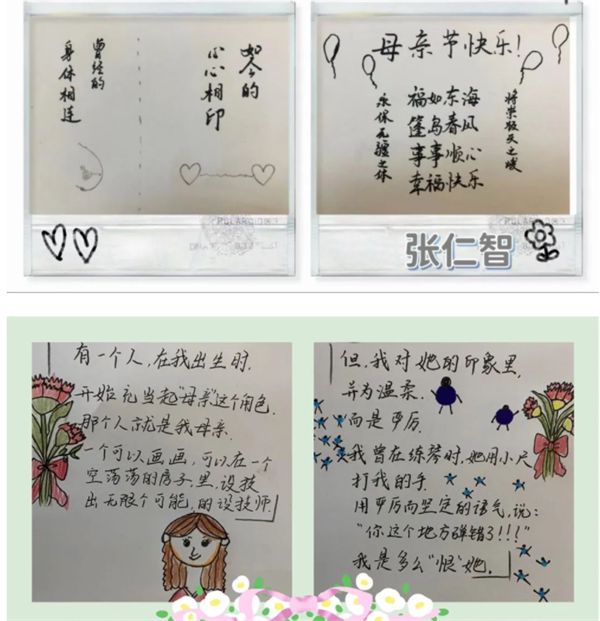 曾经的
身体相连
如今的
心心相印
母亲节快乐!
将崇极天之峻
福如东海
篷岛春风
事事顺心
幸福快乐
永保无疆之休
张仁智
有一个人,在我出生时,
开始充当起"母亲"这个角色.
那个人就是我母亲.
一个可以画画,可以在一个
空荡荡的房子里,设技
出无限个可能,的设技师
但,我对她的印象里,
并为温柔,
而是严厉.
我曾在练琴时,她用小尺
打我的手
用严厉而坚定的语气,说:
"你这个地方弹错了!!!"
我是多么"恨"她.